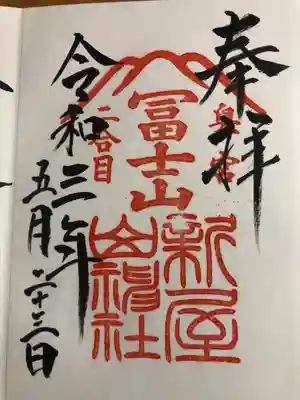 奉拝
奥宮
冨士山
二合目
新屋
山神社
令和三年
五月二十三日